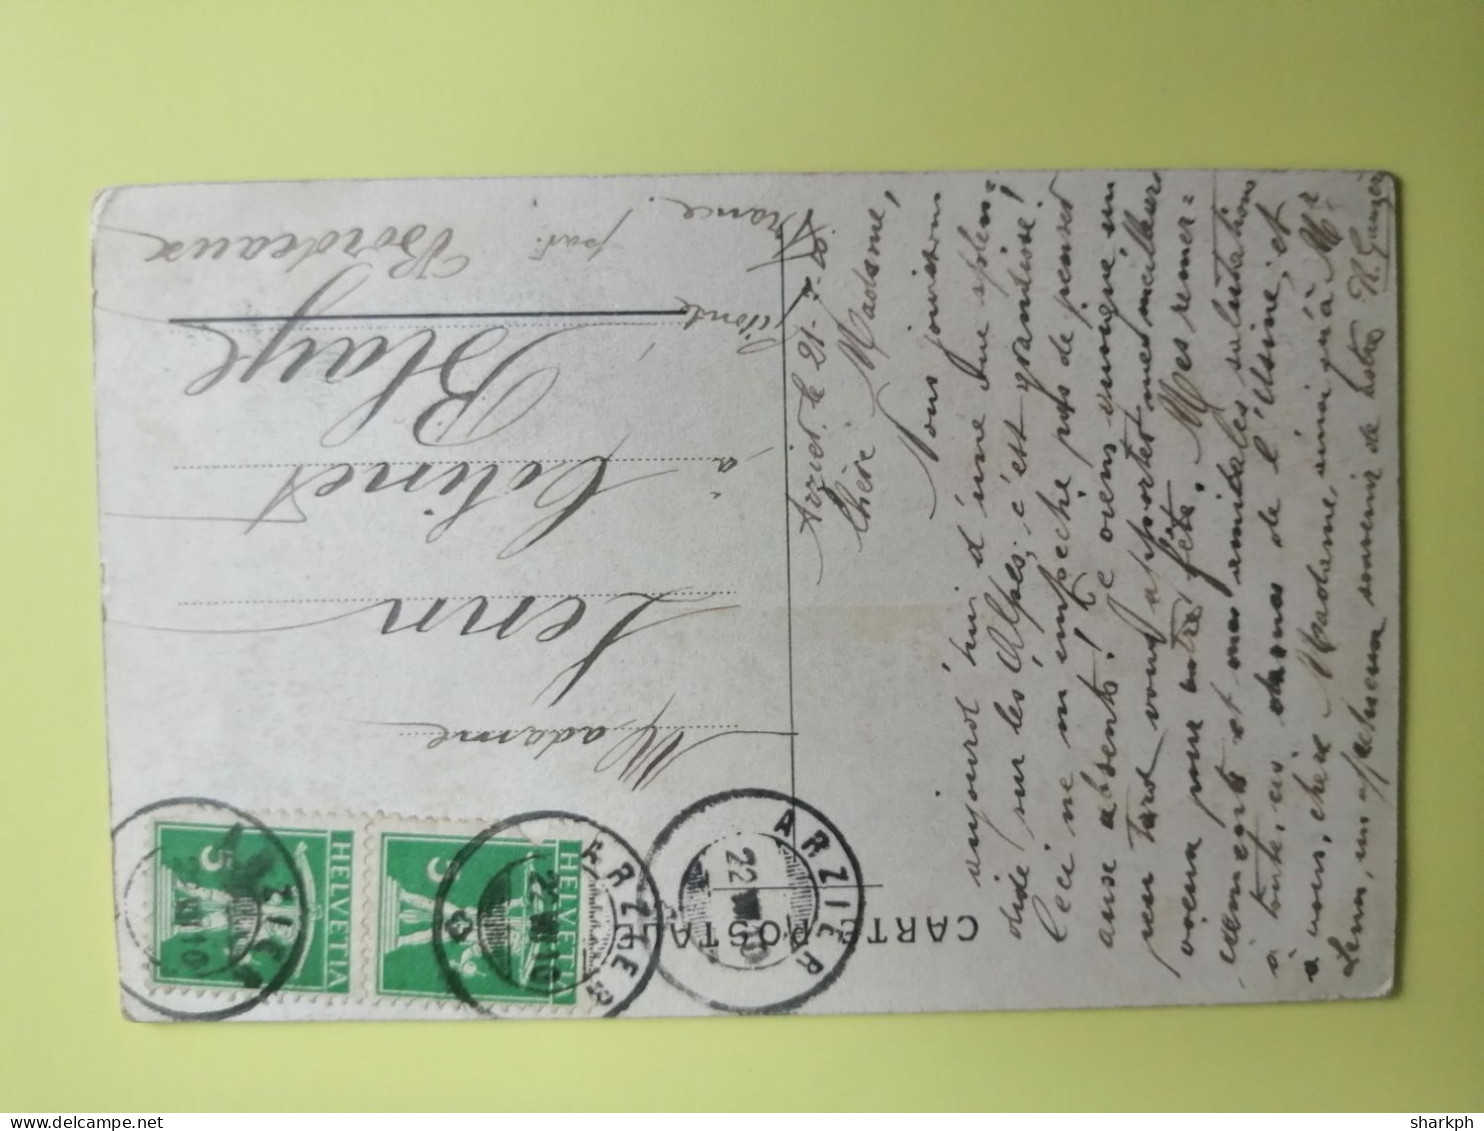 CARTE POSTALE
Arzier, le 21-
Chère Madame,
Nous jouissons
aujourd'hui d'une vue splen=
dide sur les Alpes; c'est grandiose!
Ceci ne m'empêche pas de penser
aux absents! Je viens, un
peu tard vous apporter mes meilleurs
voeux pour votre fête. Mes remer=
ciements et mes amicales salutations
à toutes ces dames de l'Usine, et
à vous, chère Madame, ainsi qu'à Mr
Lenn, un affectueux souvenir de votre
Madame
Lenn
à
Blaye
Gironde
par
Bordeaux
France.
HELVETIA
5
HELVETIA
5
ARZIER
22 VII 10
ARZIER
22 VII 10
ARZIER
10
sharkph